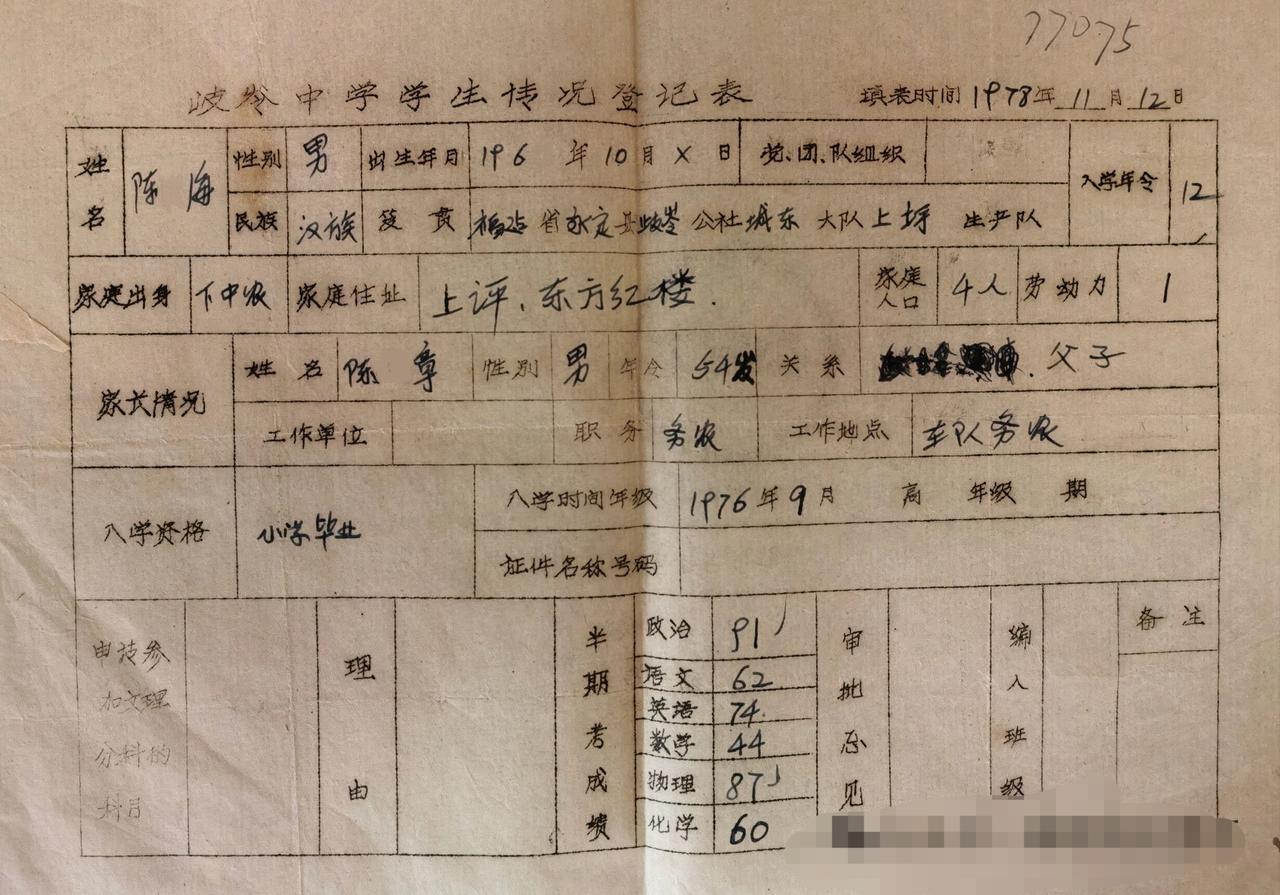 77075
岐岭中学学生情况登记表 填表时间1978年11月12日
姓名 陈海 性别 男 出生年月 196 年10月X日 党、团、队组织 入学年令 12
民族 汉族 笈贯 福建省永定县岐岭公社城东大队上坪生产队
家庭出身 下中农 家庭住址 上评、东方红楼. 家庭人口 4人 劳动力 1
家长情况 姓名 陈章 性别 男 年令 54岁 关系 父子
工作单位 职务 务农 工作地点 在队务农
入学资格 小学毕业 入学时间年级 1976年9月 高 年级 期
证件名称号码
申请参加文理分科的科目 理由 半期考成绩 政治 91 审批意见 编入班级 备注
语文 62
英语 74
数学 44
物理 87
化学 60